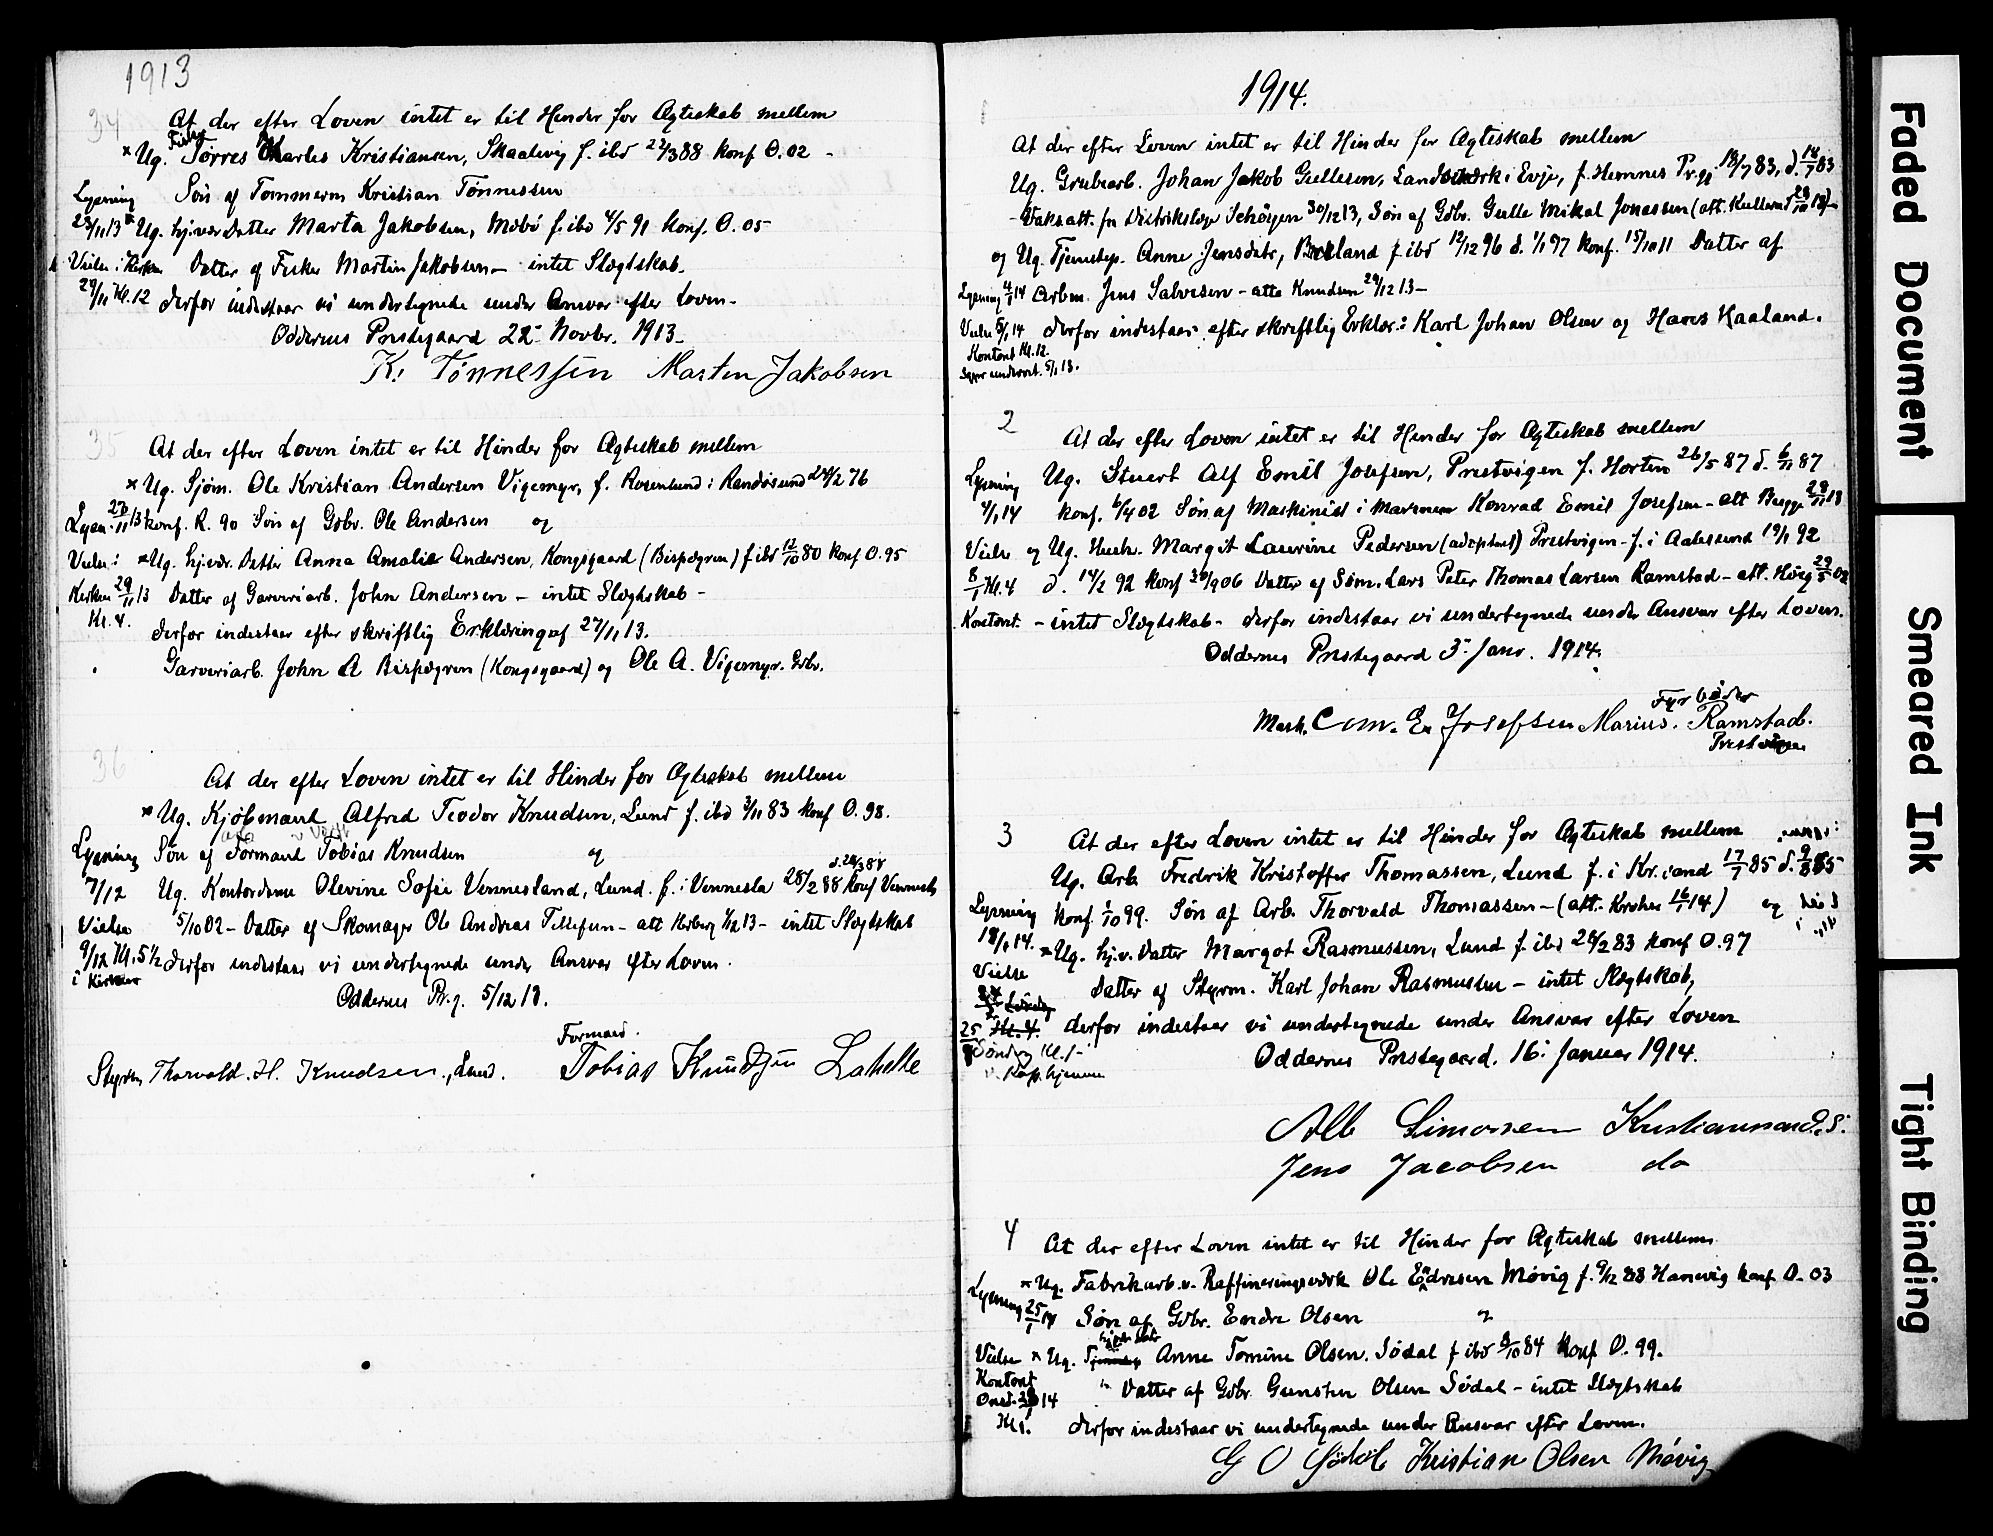 1913
34
At der efter Loven intet er til Hinder for Ægteskab mellem
Fisker
× Ug. Tørres Charles Kristiansen, Skaalevig f. ibd 22/3 88 konf O. 02 -
Lysning
Søn af Tømmerm Kristian Tønnessen
23/11 13 × Ug. hj.vær Datter Marta Jakobsen, Møbø f. ibd 4/5 91 konf. O. 05
Vielse i Kirken
Datter af Fisker Martin Jakobsen - intet Slægtskab.
29/11 Kl. 12
derfor indestaar vi undertegnede under Ansvar efter Loven -
Oddernes Prestegaard 22 Novbr. 1913.
K. Tønnessen Martin Jakobsen
35
At der efter Loven intet er til Hinder for Ægteskab mellem
× Ug. Sjøm. Ole Kristian Andersen Vigemyr, f. Rosenlund i Randøsund 24/2 76
Lysn. 23/11 13 konf. R. 90 Søn af Gdbr. Ole Andersen og
Vielse i × Ug. hj.vær. Datter Anna Amalie Andersen, Kongsgaard (Bispegren) f ibd 12/10 80 konf O. 95
Kirken 29/11 13 Datter af Garveriarb. John Andersen - intet Slægtskab -
Kl. 4.
derfor indestaar efter skriftlig Erklæring af 27/11 13.
Garveriarb. John A Bispegren (Kongsgaard) og Ole A. Vigemyr. Gdbr.
36
At der efter Loven intet er til Hinder for Ægteskab mellem
× Ug. Kjøbmand Alfred Teodor Knudsen, Lund f. ibd 3/11 83 konf O. 98.
Lysning Søn af Formand Tobias Knudsen og
d. 28/3 88
7/12 Ug. Kontordame Olevine Sofie Vennesland, Lund. f. i Vennesla 25/2 88 konf Vennesla
Vielse 5/10 02 - Datter af Skomager Ole Andreas Tellefsen - att 1/12 13 - intet Slægtskab
9/12 Kl. 5½ derfor indestaar vi undertegnede under Ansvar efter Loven.
i Kirken
Oddernes Pr.g. 5/12 13.
Formand.
Styrm. Thorvald. H. Knudsen., Lund. Tobias Knudsen Lahelle
1914.
At der efter Loven intet er til Hinder for Ægteskab mellem
Ug. Grubearb. Johan Jakob Gullesen, Landsverk i Evje, f. Hemnes Pr.gj. 18/7 83, d. 18/7 83
Vaksatt. fra Distriktslæge Schøyen 30/12 13, Søn af Gdbr. Gulle Mikal Jonassen
og Ug. Tjenestep. Anne Jensdatr, f ibd 12/12 96 d. 1/1 97 konf. 15/10 11 Datter af
Lysning 4/1 14 Arbm. Jens Salvesen - atte Knudsen 29/12 13 -
Vielse 5/1 14 derfor indestaar efter skriftlig Erklær.: Karl Johan Olsen og Hans Haaland.
Kontoret Kl. 12.
2
At der efter Loven intet er til Hinder for Ægteskab mellem
Lysning Ug. Stuert Alf Emil Josefsen, Prestvigen f. Horten 26/5 87 d. 6/11 87
4/1 14 konf. 6/4 02 Søn af Maskinist i Marinen Konrad Emil Josefsen - att Bugge 28/11 13
Vielse og Ug. Hush. Margit Laurine Pedersen (adopteret) Prestvigen - f. i Aalesund 19/1 92
8/1 Kl. 4 d. 14/2 92 konf 30/9 06 Datter af Søm. Lars Peter Thomas Larsen Ramstad - att. Høeg 23/5 02
Kontoret. - intet Slægtskab - derfor indestaar vi undertegnede under Ansvar efter Loven.
Oddernes Prestegaard 3. Janr. 1914.
Fyrbøder
Mask. E. Josefsen Marius. Ramstad.
Prestvigen
3
At der efter Loven intet er til Hinder for Ægteskab mellem
Ug. Arb. Fredrik Kristoffer Thomassen, Lund f. i Kr.sand 17/7 85 d. 9/8 85
Lysning konf. 1/10 99. Søn af Arb. Thorvald Thomassen - (att. Krohn 16/1 14) og
18/1 14. × Ug. hj.v. Datter Margot Rasmussen, Lund f ibd 28/2 83 konf O. 97
Vielse
Datter af Styrm. Karl Johan Rasmussen - intet Slægtskab,
Lørdag
25 Kl. 4. derfor indestaar vi undertegnede under Ansvar efter Loven
Søndag Kl. 1 -
Oddernes Prestegaard. 16. Januar 1914.
Alb Simonsen Kristianssand. S.
Jens Jacobsen do
4
At der efter Loven intet er til Hinder for Ægteskab mellem
Lysning 25/1 14 × Ug. Fabrikarb. v. Raffineringsverk Ole Endresen Møvig f. 9/12 88 Hanevig konf O. 03
Søn af Gdbr. Endre Olsen
Vielse × Ug. Anne Tomine Olsen. Sødal f ibd 8/10 84 konf O. 99.
Kontoret
Datter af Gdbr. Gunsten Olsen Sødal - intet Slægtskab
Onsd. 28/1 14
Kl 1. derfor indestaar vi undertegnede under Ansvar efter Loven.
G O Sødal Kristian Olsen Møvig
Faded Document
Smeared Ink
Tight Binding